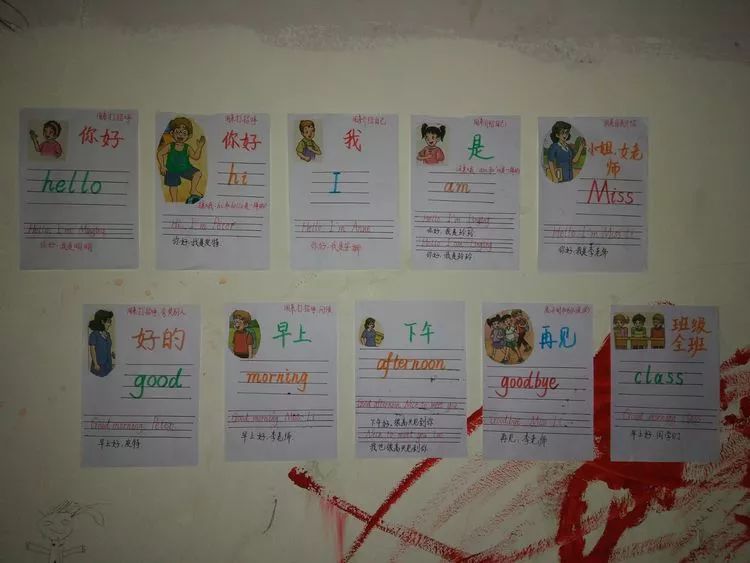 用来打招呼
你好
hello
Hello, I'm Mingming
你好,我是明明
用来打招呼
你好
hi
Hi, I'm Peter
你好,我是皮特
用来介绍自己
我
I
Hello, I'm Anne
你好,我是安娜
用来介绍自己
是
am
Hello, I'm Lingling
你好,我是玲玲
Hello, I'm Lingling
你好,我是玲玲
小姐,女老师
Miss
Hello, I'm Miss Li
你好,我是李老师
好的
good
Good morning, Peter.
早上好,皮特
早上
morning
Good morning, Miss Li
早上好,李老师
下午
afternoon
Good afternoon, Nice to meet you
下午好,很高兴见到你
Nice to meet you, too
我也很高兴见到你
再见
goodbye
Goodbye, Miss Li.
再见,李老师
班级
全班
class
Good morning class
早上好,同学们